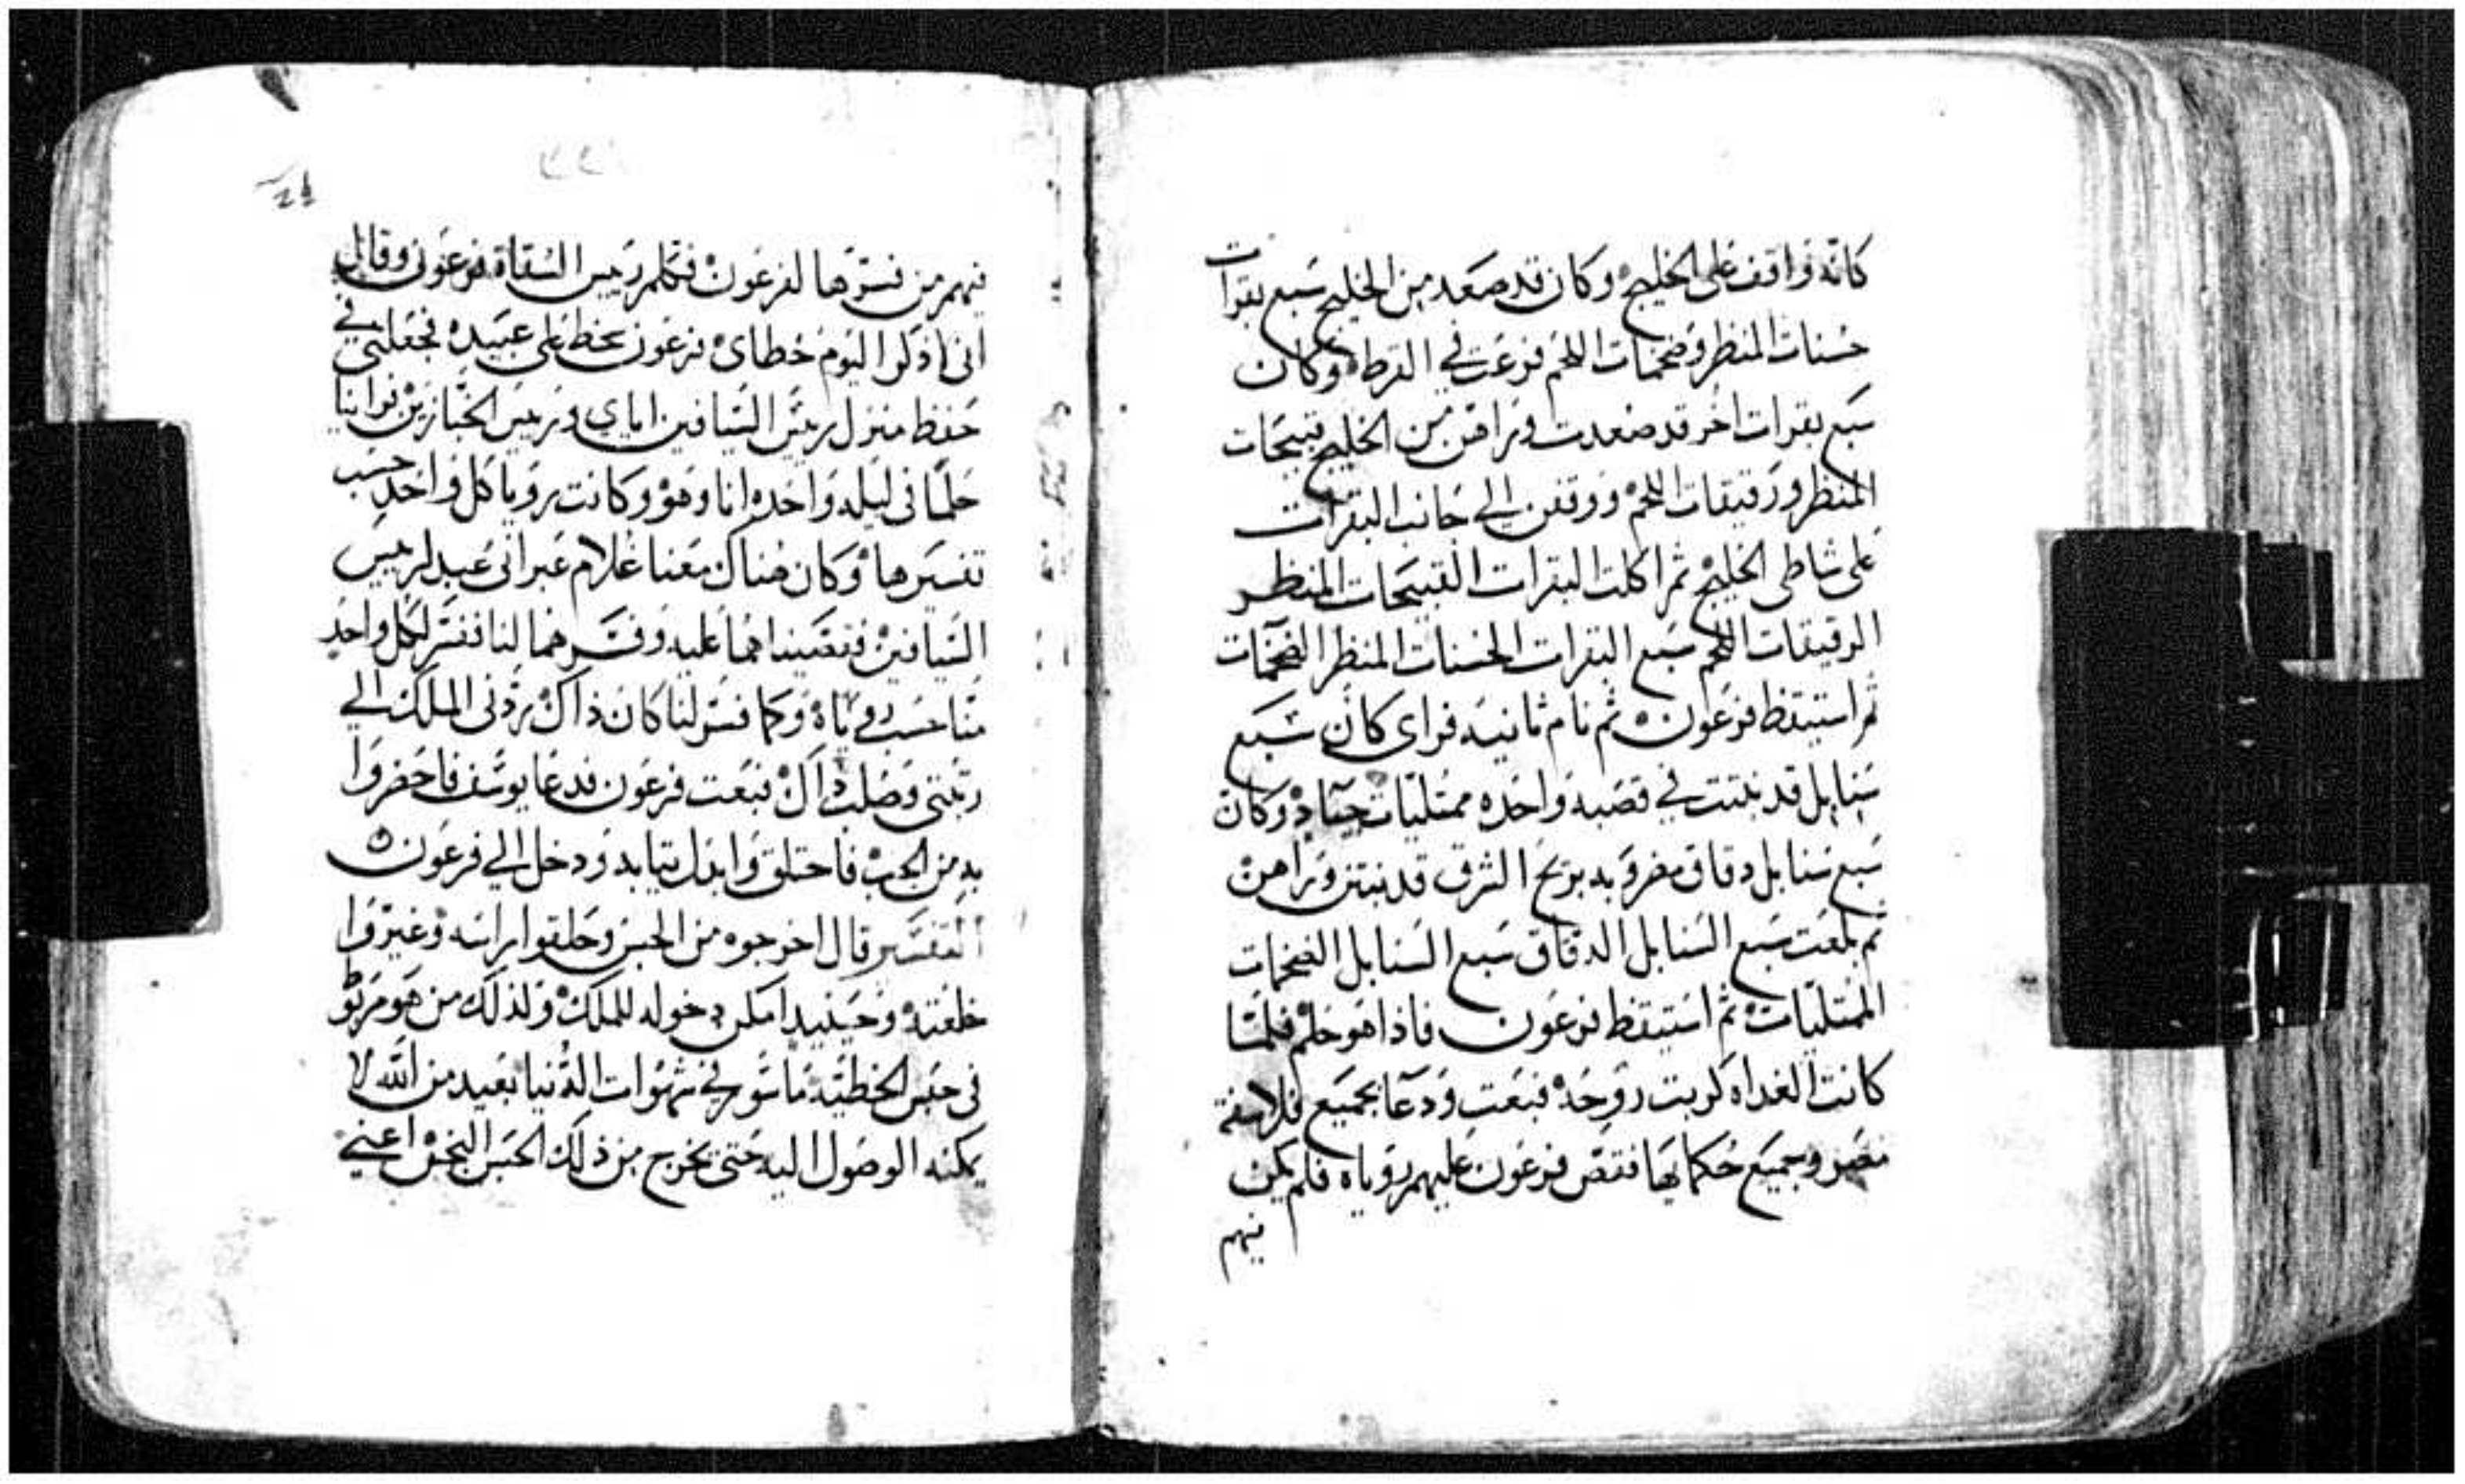 كانه واقف على الخليج وكان قد صعد من الخليج سبع بقرات
حسنات المنظر وضخمات اللحم فرعت في القرط وكان
سبع بقرات اخر قد صعدت وراهن من الخليج قبيحات
المنظر ورقيقات اللحم ووقفن الي جانب البقرات
على شاطى الخليج ثم اكلت البقرات القبيحات المنظر
الرقيقات اللحم سبع البقرات الحسنات المنظر الضخمات
ثم استيقظ فرعون ثم نام ثانيه فراى كان سبع
سنابل قد نبتت في قصبه واحده ممتليات جياد وكان
سبع سنابل دقاق مضروبه بريح الشرق قد نبتن وراهن
ثم بلعت سبع السنابل الدقاق سبع السنابل الضخمات
الممتليات ثم استيقظ فرعون فاذا هو حلم فلما
كانت الغداه كربت روحه فبعت ودعا بجميع فلاسفة
مصر وبجميع حكمايها فقص فرعون عليهم روياه فلم يكن
فيهم
فيهم من فسرها لفرعون فتكلم رييس السقاة فرعون وقال
اني اذكر اليوم خطاى فرعون سخط على عبيده فجعلني في
حفظ منزل رييس السيافين اياي ورييس الخبازين فراينا
حلما في ليله واحده انا وهو وكانت رويا كل واحد حسب
تفسيرها وكان هناك معنا غلام عبراني عبد لرييس
السيافين فقصيناهما عليه وفسرهما لنا ففسر لكل واحد
منا حسب روياه وكما فسر لنا كان ذاك ردني الملك الي
رتبتي وصلب ذاك فبعت فرعون فدعا يوسف فاحضروا
به من الجب فاحتلق وابدل تيابه ودخل الي فرعون
التفسير قال اخرجوه من الحبس وحلقوا راسه وغيروا
خلعته وحينيد امكن دخوله للملك ولذلك من هو مربوط
في حبس الخطيه ماسور في شهوات الدنيا بعيد من الله لا
يمكنه الوصول اليه حتى يخرج من ذلك الحبس النجس اعني